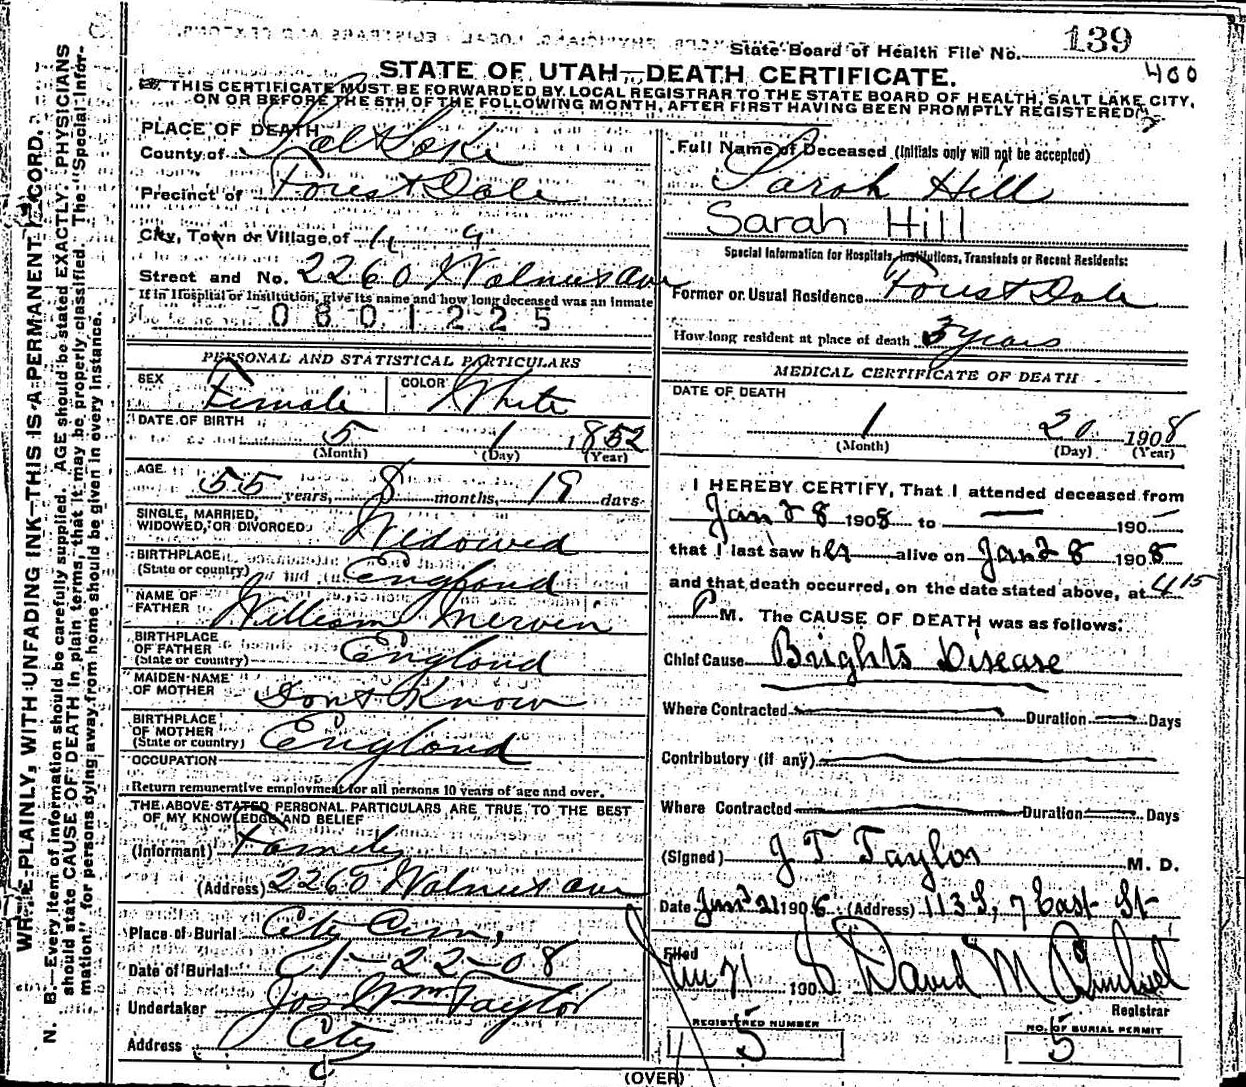 State Board of Health File No. 139
400
STATE OF UTAH—DEATH CERTIFICATE.
THIS CERTIFICATE MUST BE FORWARDED BY LOCAL REGISTRAR TO THE STATE BOARD OF HEALTH, SALT LAKE CITY,
ON OR BEFORE THE 5TH OF THE FOLLOWING MONTH, AFTER FIRST HAVING BEEN PROMPTLY REGISTERED
WRITE PLAINLY, WITH UNFADING INK—THIS IS A PERMANENT RECORD.
N. B.—Every item of information should be carefully supplied. AGE should be stated EXACTLY. PHYSICIANS
should state CAUSE OF DEATH in plain terms, that it may be properly classified. The "Special Infor-
mation" for persons dying away from home should be given in every instance.
PLACE OF DEATH
County of Salt Lake
Precinct of Forest Dale
City, Town or Village of
Street and No. 2260 Walnut ave
If in Hospital or Institution, give its name and how long deceased was an inmate
0801225
PERSONAL AND STATISTICAL PARTICULARS
SEX Female COLOR White
DATE OF BIRTH 5 1 1852
(Month) (Day) (Year)
AGE 55 years, 8 months, 19 days
SINGLE, MARRIED,
WIDOWED, OR DIVORCED Widowed
BIRTHPLACE
(State or country) England
NAME OF
FATHER William Mervin
BIRTHPLACE
OF FATHER
(State or country) England
MAIDEN NAME
OF MOTHER Dont Know
BIRTHPLACE
OF MOTHER
(State or country) England
OCCUPATION
Return remunerative employment for all persons 10 years of age and over.
THE ABOVE STATED PERSONAL PARTICULARS ARE TRUE TO THE BEST
OF MY KNOWLEDGE AND BELIEF
(Informant) Family
(Address) 2260 Walnut ave
Place of Burial City Cem,
Date of Burial 1-22-08
Undertaker Jos Wm Taylor
Address City
Full Name of Deceased (Initials only will not be accepted)
Sarah Hill
Sarah Hill
Special Information for Hospitals, Institutions, Transients or Recent Residents:
Former or Usual Residence Forest Dale
How long resident at place of death 3 years
MEDICAL CERTIFICATE OF DEATH
DATE OF DEATH
1 20 1908
(Month) (Day) (Year)
I HEREBY CERTIFY, That I attended deceased from
Jan 28 1908 to — 190—
that I last saw her alive on Jan 28 1908
and that death occurred, on the date stated above, at 4 15
P M. The CAUSE OF DEATH was as follows:
Chief Cause Brights Disease
Where Contracted Duration Days
Contributory (if any)
Where Contracted Duration Days
(Signed) J T Taylor M. D.
Date Jan 21 1906 (Address) 113 S, 7 East St
Filed Jan 21 1908 David M
Registrar
REGISTERED NUMBER
5
NO. OF BURIAL PERMIT
5
(OVER)